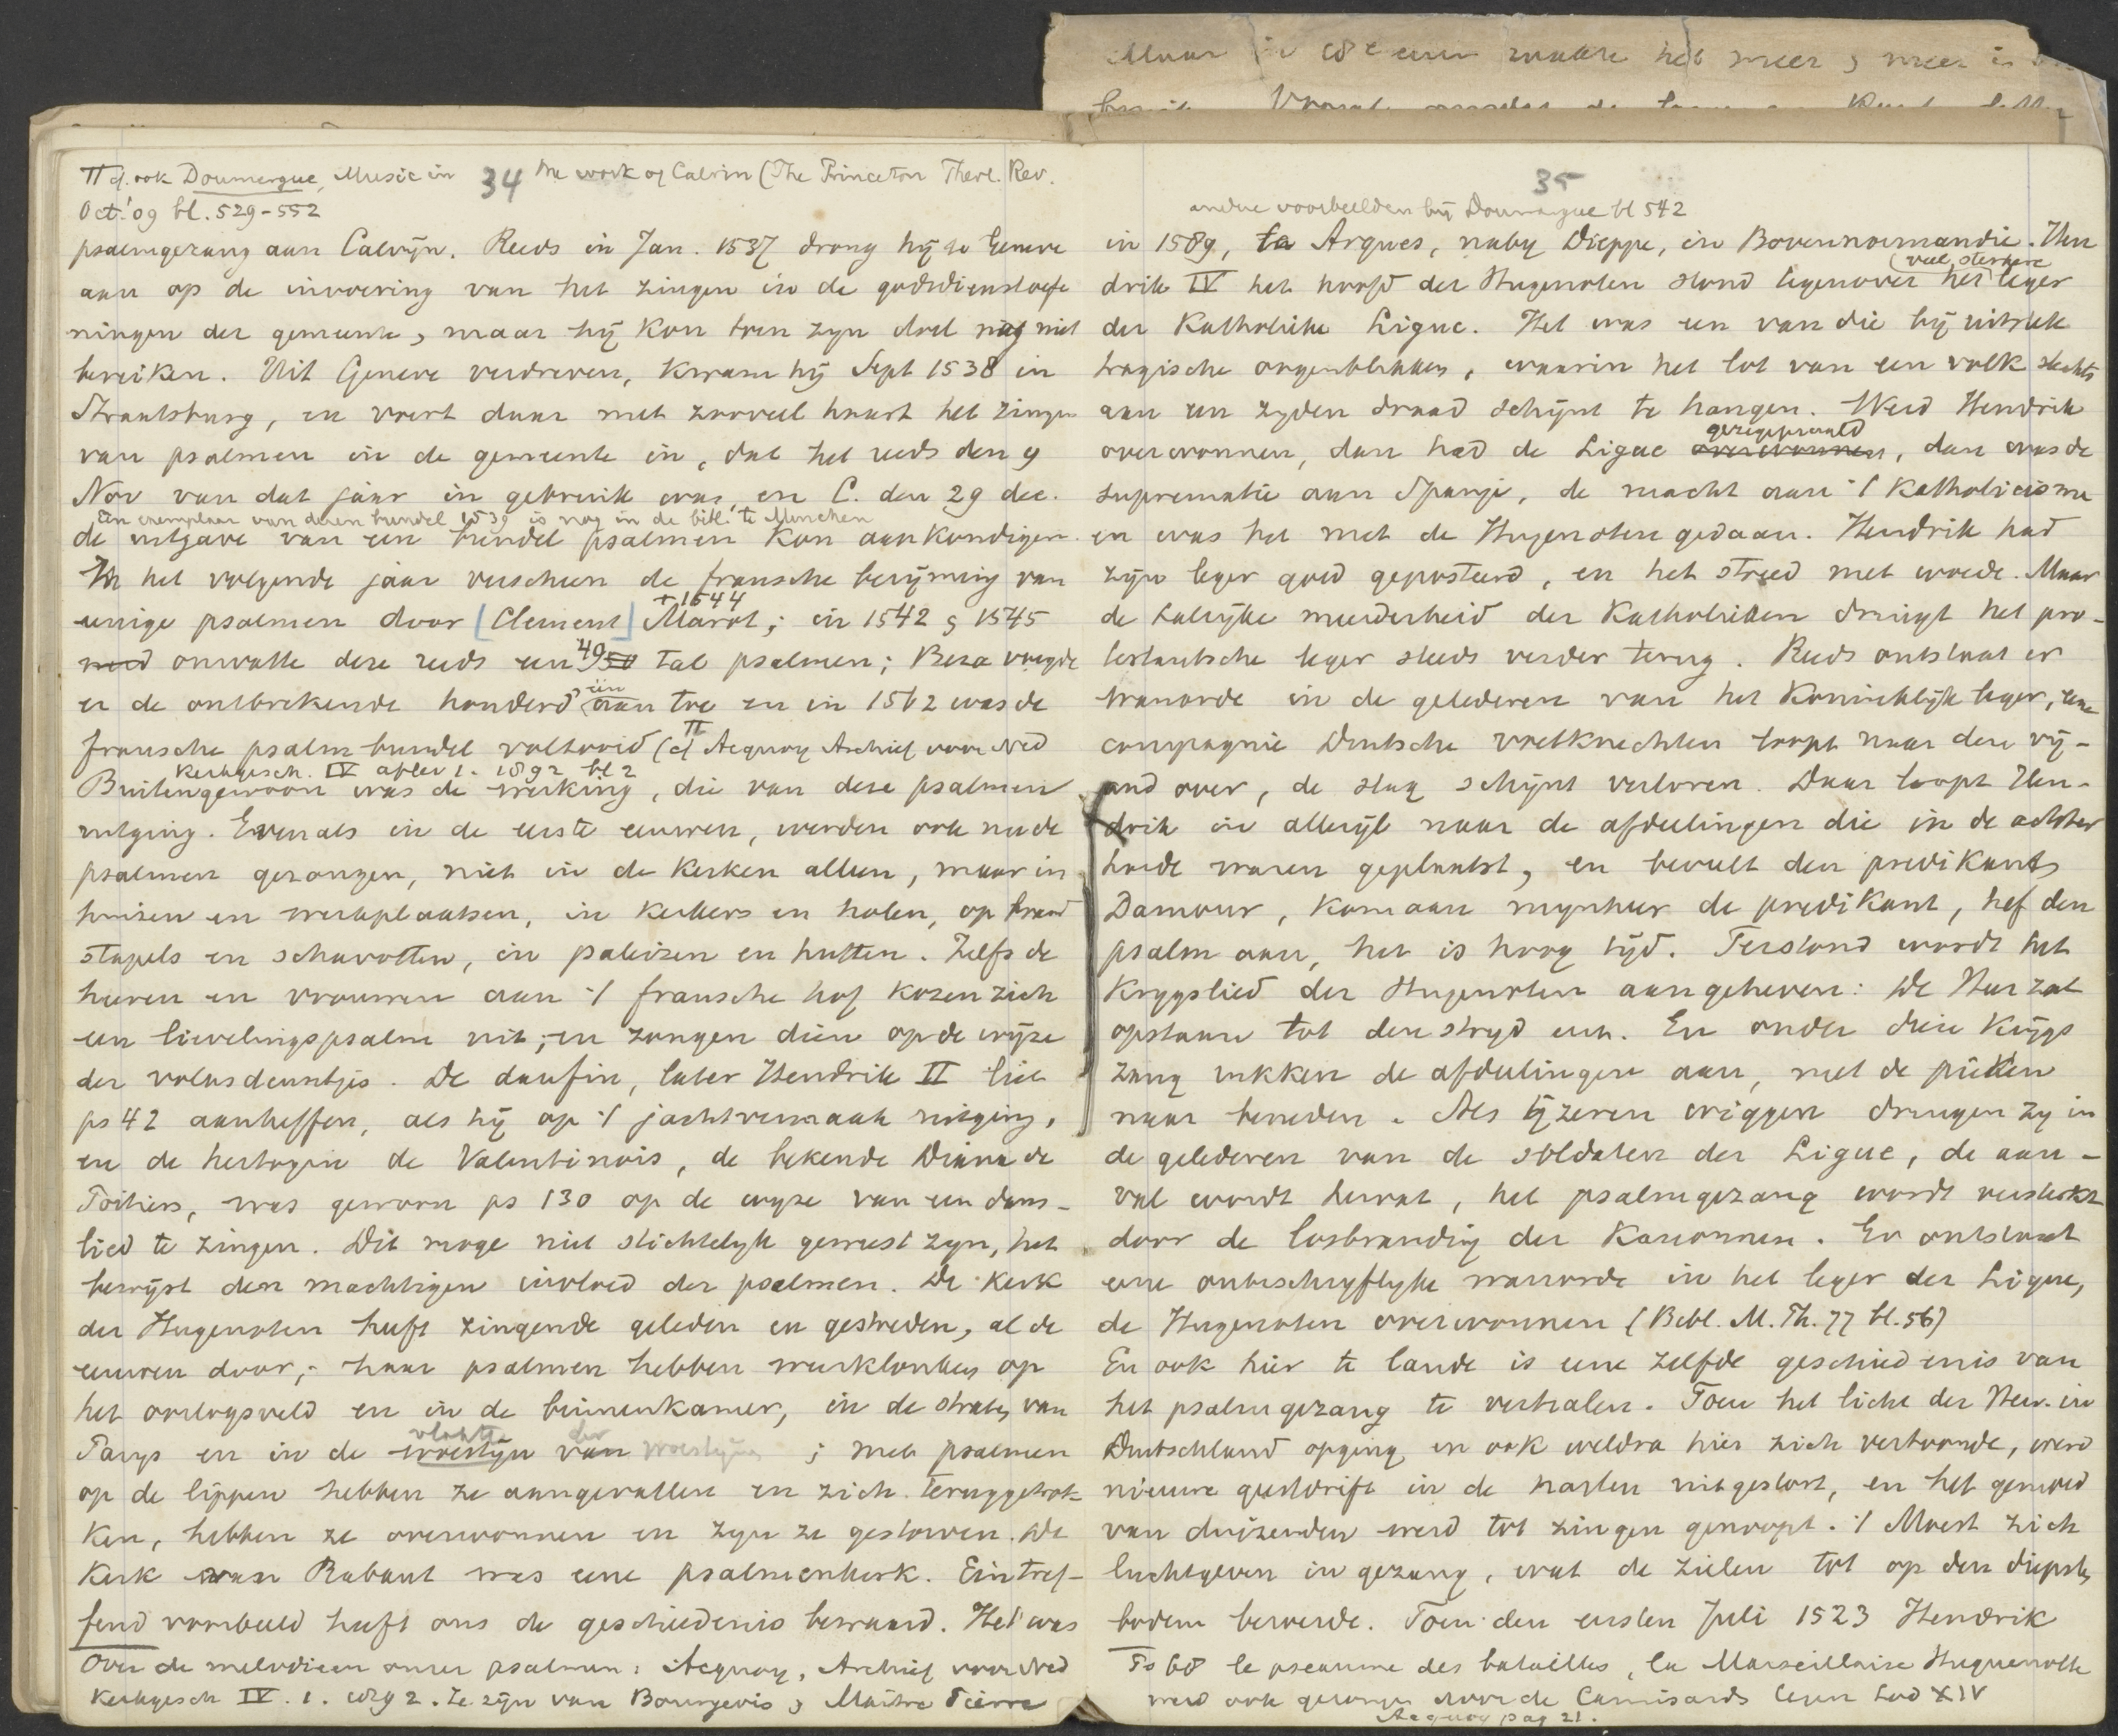 Maar in 18e eeuw raakte het meer & meer in
34
π cf. ook Doumergue, Music in the work of Calvin (The Princeton Theol. Rev.
Oct. '09 bl. 529-552
psalmgezang aan Calvijn. Reeds in Jan. 1537 drong hij te Geneve
aan op de invoering van het zingen in de godsdienstoefe
ningen der gemeente, maar hij kon toen zijn doel nog niet
bereiken. Uit Geneve verdreven, kwam hij Sept 1538 in
Straatsburg, en voert daar met zooveel haast het zingen
van psalmen in de gemeente in, dat het reeds den 9
Nov van dat jaar in gebruik was, en C. den 29 dec.
een exemplaar van dezen bundel 1539 is nog in de bibl. te Munchen
de uitgave van een bundel psalmen kon aankondigen.
In het volgende jaar verscheen de fransche berijming van
+ 1544
eenige psalmen door [Clement] Marot; in 1542 & 1545
omvatte deze reeds een 49 50 tal psalmen; Beza voegde
er de ontbrekende honderd één aan toe en in 1562 was de
fransche psalmbundel voltooid (cf π Acquoy Archief voor Ned
Kerkgesch. IV aflev 1. 1892 bl 2
Buitengewoon was de werking, die van deze psalmen
uitging. Evenals in de eerste eeuwen, werden ook nu de
psalmen gezongen, niet in de kerken alleen, maar in
huizen en werkplaatsen, in kerkers en holen, op brand
stapels en schavotten, in paleizen en hutten. Zelfs de
heeren en vrouwen aan 't fransche hof kozen zich
een lievelingspsalm uit, en zongen dien op de wijze
der volksdeuntjes. De daufin, later Hendrik II liet
ps 42 aanheffen, als hij op 't jachtvermaak uitging,
en de hertogin de Valentinois, de bekende Diana de
Poitiers, was gewoon ps 130 op de wijze van een dans-
lied te zingen. Dit moge niet stichtelijk geweest zijn, het
bewijst den machtigen invloed der psalmen. De kerk
der Hugenoten heeft zingende geleden en gestreden, al de
eeuwen door; haar psalmen hebben weerklonken op
het oorlogsveld en in de binnenkamer, in de straten van
vlakte der
Parijs en in de woestijn van woestijn; met psalmen
op de lippen hebben ze aangevallen en zich teruggetrok-
ken, hebben ze overwonnen en zijn ze gestorven. De
Kerk van Rabaut was eene psalmenkerk. Een tref-
fend voorbeeld heeft ons de geschiedenis bewaard. Het was
Over de melodieen onzer psalmen: Acquoy, Archief voor Ned
Kerkgesch IV. 1. 1892. Ze zijn van Bourgeois & Maître Pierre
35
andere voorbeelden bij Doumergue bl 542
in 1589, te Arques, nabij Dieppe, in Bovennormandie. Hen
veel sterkere
drik IV het hoofd der Hugenoten stond tegenover het leger
der Katholieke Ligue. Het was een van die bij uitstek
tragische oogenblikken, waarin het lot van een volk slechts
aan een zijden draad schijnt te hangen. Werd Hendrik
gezegepraald
overwonnen, dan had de Ligue overwonnen, dan was de
suprematie aan Spanje, de macht aan 't Katholicisme
en was het met de Hugenoten gedaan. Hendrik had
zijn leger goed geposteerd, en het streed met woede. Maar
de talrijke meerderheid der Katholieken dringt het pro-
testantsche leger steeds verder terug. Reeds ontstaat er
wanorde in de gelederen van het koninklijk leger, eene
compagnie Duitsche voetknechten loopt naar den vij-
and over, de slag schijnt verloren. Daar loopt Hen-
drik in allerijl naar de afdeelingen die in de achter
hoede waren geplaatst, en beveelt den predikant
Damour, kom aan mijnheer de predikant, hef den
psalm aan, het is hoog tijd. Terstond wordt het
krijgslied der Hugenoten aangeheven: De Heer zal
opstaan tot den strijd enz. En onder dien krijgs
zang rukken de afdeelingen aan, met de pieken
naar beneden. Als ijzeren wiggen dringen zij in
de gelederen van de soldaten der Ligue, de aan-
val wordt hervat, het psalmgezang wordt versterkt
door de losbranding der kanonnen. Er ontstaat
eene onbeschrijflijke wanorde in het leger der Ligue,
de Hugenoten overwonnen (Bibl. M. Th. 77 bl. 56)
En ook hier te lande is eene zelfde geschiedenis van
het psalmgezang te verhalen. Toen het licht der Herv. in
Duitschland opging en ook weldra hier zich vertoonde, werd
nieuwe geestdrift in de harten uitgestort, en het gemoed
van duizenden werd tot zingen genoopt. 't Moest zich
luchtgeven in gezang, wat de zielen tot op den diepsten
bodem beroerde. Toen den eersten Juli 1523 Hendrik
Ps 68 le pseaume des batailles, la Marseillaise Huguenotte
werd ook gezongen door de Camisards tegen Lod XIV
Acquoy pag 21.